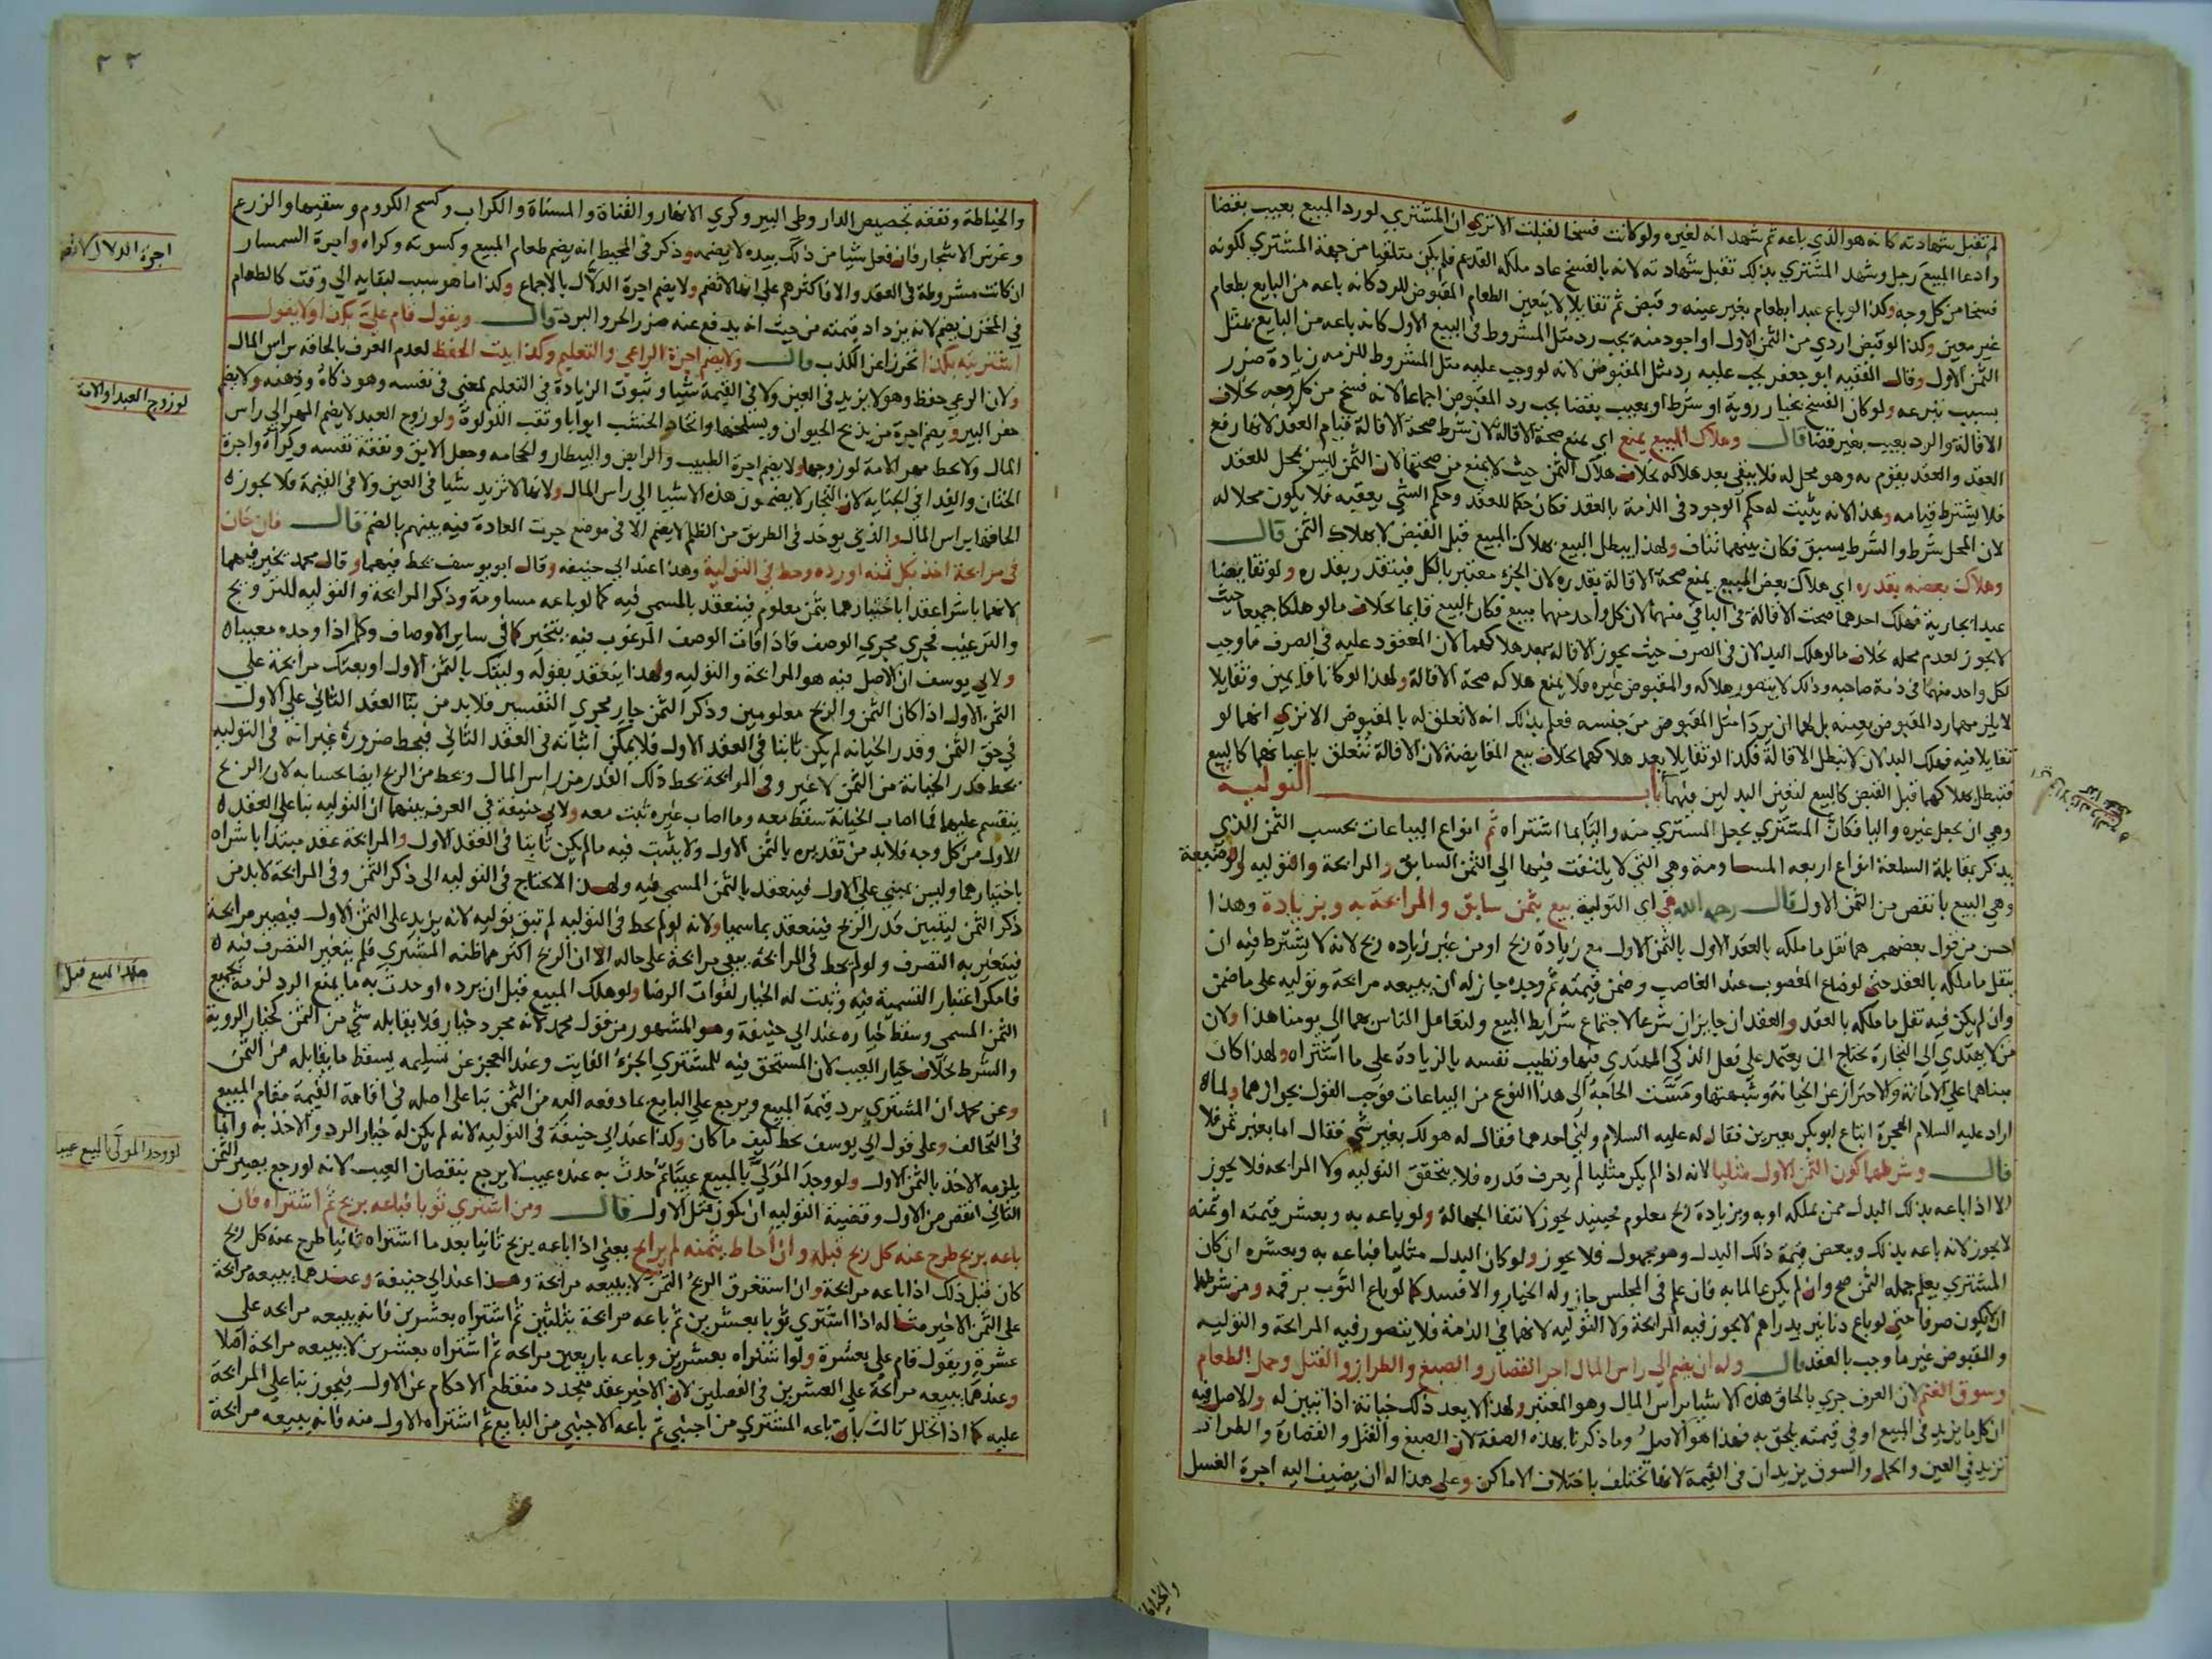 لم تقبل شهادته كانه هو الذي باعه ثم شهد انه لغيره ولو كانت فسخا لقبلت الا تري ان المشتري لو رد المبيع بعيب بقضا
وادعا المبيع رجل وشهد المشتري بذلك تقبل شهادته لانه بالفسخ عاد ملكه القديم فلم يكن متلقيا من جهة المشتري لكونه
فسخا من كل وجه وكذا لو باع عبدا بطعام بغير عينه وقبض ثم تقايلا لا يتعين الطعام المقبوض للرد كانه باعه من البايع بطعام
غير معين وكذا لو قبض اردي من الثمن الاول او اجود منه يجب رد مثل المشروط في البيع الاول كانه باعه من البايع بمثل
الثمن الاول وقال الفقيه ابو جعفر يجب عليه رد مثل المقبوض لانه لو وجب عليه مثل المشروط للزمه زيادة ضرر
بسبب تبرعه ولو كان الفسخ بخيار روية او شرط او بعيب بقضا يجب رد المقبوض اجماعا لانه فسخ من كل وجه بخلاف
الاقالة والرد بعيب بغير قضا قال وهلاك المبيع يمنع اي يمنع صحة الاقالة لان شرط صحة الاقالة قيام العقد لانها رفع
العقد والعقد يقوم به وهو محل له فلا يبقي بعد هلاكه بخلاف هلاك الثمن حيث لا يمنع من صحتها لان الثمن ليس بمحل للعقد
فلا يشترط قيامه وهذا لانه يثبت له حكم الوجود في الذمة بالعقد فكان حكما للعقد وحكم الشي يعقبه فلا يكون محلا له
لان المحل شرط والشرط يسبق فكان بينهما تناف ولهذا يبطل البيع بهلاك المبيع قبل القبض لا بهلاك الثمن قال
وهلاك بعضه بقدره اي هلاك بعض المبيع يمنع صحة الاقالة بقدره لان الجزء معتبر بالكل فيتقدر بقدره ولو تقابضا
عبدا بجارية فهلك احدهما صحت الاقالة في الباقي منهما لان كل واحد منهما مبيع فكان البيع قايما بخلاف ما لو هلكا جميعا حيث
لا يجوز لعدم محله بخلاف ما لو هلك البدلان في الصرف حيث يجوز الاقالة بعد هلاكهما لان المعقود عليه في الصرف ما وجب
لكل واحد منهما في ذمة صاحبه وذلك لا يتصور هلاكه والمقبوض غيره فلا يمنع هلاكه صحة الاقالة ولهذا لو كانا قايمين وتقايلا
لا يلزمهما رد المقبوض بعينه بل لهما ان يردا مثل المقبوض من جنسه فعلم بذلك انه لا تعلق له بالمقبوض الا تري انهما لو
تقايلا فيه فهلك البدلان لا تبطل الاقالة فكذا لو تقايلا بعد هلاكهما بخلاف بيع المقايضة لان الاقالة تتعلق باعيانهما كالبيع
فتبطل بهلاكهما قبل القبض كالبيع لتعين البدلين فيهما باب التولية
وهي ان يجعل غيره واليا فكان المشتري يجعل المشتري منه واليا بما اشتراه ثم انواع البياعات بحسب الثمن الذي
يذكر بمقابلة السلعة انواع اربعه المساومة وهي التي لا يلتفت فيها الي الثمن السابق والمرابحة والتوليه والوضيعة
وهي البيع بانقص من الثمن الاول قال رحمه الله هي اي التولية بيع بثمن سابق والمرابحة به وبزيادة وهذا
احسن من قول بعضهم هما نقل ما ملكه بالعقد الاول بالثمن الاول مع زيادة ربح او من غير زيادة ربح لانه لا يشترط فيه ان
ينقل ما ملكه بالعقد حتي لو ضاع المغصوب عند الغاصب وضمن قيمته ثم وجده جاز له ان يبيعه مرابحة وتولية على ما ضمن
وان لم يكن فيه نقل ما ملكه بالعقد والعقدان جايزان شرعا لاجتماع شرايط البيع ولتعامل الناس بهما الي يومنا هذا ولان
من لا يهتدي الى التجارة يحتاج الي ان يعتمد علي فعل الذكي المهتدي فيها وتطيب نفسه بالزيادة علي ما اشتراه ولهذا كان
مبناهما علي الامانة والاحتراز عن الخيانة وشبهتها ومست الحاجة الى هذا النوع من البياعات فوجب القول بجوازهما ولما
اراد عليه السلام الهجرة ابتاع ابو بكر بعيرين فقال له عليه السلام ولني احدهما فقال له هو لك بغير شي فقال اما بغير ثمن فلا
قال وشرطهما كون الثمن الاول مثليا لانه اذا لم يكن مثليا لم يعرف قدره فلا يتحقق التوليه ولا المرابحه فلا يجوز
الا اذا باعه بذلك البدل ممن يملكه او به وبزيادة ربح معلوم فحينيذ يجوز لانتفا الجهالة ولو باعه به وبعشر قيمته او ثمنه
لا يجوز لانه باعه بذلك وببعض قيمة ذلك البدل وهو مجهول فلا يجوز ولو كان البدل مثليا فباعه به وبعشره ان كان
المشتري يعلم جمله الثمن صح وان لم يكن عالما به فان علم في المجلس جاز وله الخيار والا فسد كما لو باع الثوب برقمه ومن شرطهما
ان لا يكون صرفا حتي لو باع دنانير بدراهم لا يجوز فيه المرابحة ولا التوليه لانهما في الذمة فلا يتصور فيه المرابحة والتوليه
والمقبوض غير ما وجب بالعقد قال وله ان يضم الي راس المال اجر القصار والصبغ والطراز والفتل وحمل الطعام
وسوق الغنم لان العرف جري بالحاق هذه الاشيا براس المال وهو المعتبر ولهذا لا يعد ذلك خيانة اذا تبين له والاصل فيه
ان كل ما يزيد في المبيع او في قيمته يلحق به فهذا هو الاصل وما ذكرنا بهذه الصفة لان الصبغ والفتل والقصارة والطراز
تزيد في العين والحمل والسوق يزيدان في القيمة لانها تختلف باختلاف الاماكن وعلى هذا له ان يضيف اليه اجرة الغسل
والخياطة
٢٢
والخياطة ونفقه تجصيص الدار وطي البير وكري الانهار والقناة والمسناة والكراب وكسح الكروم وسقيها والزرع
وغرس الاشجار فان فعل شيا من ذلك بيده لا يضمه وذكر في المحيط انه يضم طعام المبيع وكسوته وكراه واجرة السمسار
ان كانت مشروطة في العقد والا فاكثرهم على انها لا تضم ولا يضم اجرة الدلال بالاجماع وكذا ما هو سبب لبقايه الي وقت كالطعام
في المخزن يضم لانه يزداد قيمته من حيث انه يدفع عنه ضرر الحر والبرد قال ويقول قام علي بكذا ولا يقول
اشتريته بكذا تحرزا عن الكذب قال ولا يضم اجرة الراعي والتعليم وكذا بيت الحفظ لعدم العرف بالحاقه براس المال
ولان الرعي حفظ وهو لا يزيد في العين ولا في القيمة شيا وثبوت الزيادة في التعليم لمعني في نفسه وهو ذكاه وذهنه ولا يضم
حفر البير ويضم اجرة من يذبح الحيوان ويسلخها واتخاذ الخشب ابوابا وثقب اللولوة ولو زوج العبد لا يضم المهر الي راس
المال ولا يحط مهر الامة لو زوجها ولا يضم اجرة الطبيب والرايض والبيطار والحجامه وجعل الابق ونفقة نفسه وكراه واجرة
الختان والفدا في الجناية لان التجار لا يضمون هذه الاشيا الي راس المال ولانها لا تزيد شيا في العين ولا في القيمة فلا يجوز
الحاقها براس المال والذي يوخذ في الطريق من الظلم لا يضم الا في موضع جرت العادة فيه بينهم بالضم قال فان خان
في مرابحة اخذ بكل ثمنه او رده وحط في التولية وهذا عند ابي حنيفه وقال ابو يوسف يحط فيهما وقال محمد يخير فيهما
لانهما باشرا عقدا باختيارهما بثمن معلوم فينعقد بالمسمي فيه كما لو باعه مساومة وذكر المرابحة والتوليه للترويج
والترغيب فجري مجري الوصف فاذا فات الوصف المرغوب فيه يتخير كما في ساير الاوصاف وكما اذا وجده معيبا
ولابي يوسف ان الاصل فيه هو المرابحة والتوليه ولهذا ينعقد بقوله وليتك بالثمن الاول او بعتك مرابحة علي
الثمن الاول اذا كان الثمن والربح معلومين وذكر الثمن جار مجري التفسير فلا بد من بنا العقد الثاني علي الاول
في حق الثمن وقدر الخيانه لم يكن ثابتا في العقد الاول فلا يمكن اثباته في العقد الثاني فيحط ضرورة غير انه في التوليه
يحط قدر الخيانة من الثمن لا غير وفي المرابحة يحط ذلك القدر من راس المال ويحط من الربح ايضا بحسابه لان الربح
ينقسم عليهما فما اصاب الخيانة سقط معه وما اصاب غيره ثبت معه ولابي حنيفة في العرف بينهما ان التوليه بنا على العقد
الاول من كل وجه فلا بد من تقديره بالثمن الاول ولا يثبت فيه ما لم يكن ثابتا في العقد الاول والمرابحة عقد مبتدا باشراه
باختيارهما وليس بمبني علي الاول فينعقد بالثمن المسمي فيه ولهذا لا يحتاج في التوليه الى ذكر الثمن وفي المرابحة لا بد من
ذكر الثمن ليتبين قدر الربح فينعقد بما سميا ولانه لو لم يحط في التوليه لم تبق توليه لانه يزيد على الثمن الاول فيصير مرابحة
فيتغير به التصرف ولو لم يحط في المرابحة يبقي مرابحة على حاله الا ان الربح اكثر مما ظنه المشتري فلم يتغير التصرف فيه
فامكن اعتبار التسمية فيه وثبت له الخيار لفوات الرضا ولو هلك المبيع قبل ان يرده او حدث به ما يمنع الرد لزمه جميع
الثمن المسمي وسقط خياره عند ابي حنيفة وهو المشهور من قول محمد لانه مجرد خيار فلا يقابله شي من الثمن كخيار الروية
والشرط بخلاف خيار العيب لان المستحق فيه للمشتري الجزء الفايت وعند العجز عن تسليمه يسقط ما يقابله من الثمن
وعن محمد ان المشتري يرد قيمة المبيع ويرجع علي البايع بما دفعه اليه من الثمن بنا على اصله في اقامة القيمة مقام المبيع
في التحالف وعلى قول ابي يوسف يحط كيف ما كان وكذا عند ابي حنيفة في التوليه لانه لم يكن له خيار الرد والاخذ به وانما
يلزمه الاخذ بالثمن الاول ولو وجد المولي بالمبيع عيبا ثم حدث به عنده عيب لا يرجع بنقصان العيب لانه لو رجع يصير الثمن
الثاني انقص من الاول وقضية التوليه ان يكون مثل الاول قال ومن اشتري ثوبا فباعه بربح ثم اشتراه فان
باعه بربح طرح عنه كل ربح قبله وان احاط بثمنه لم يرابح يعني اذا باعه بربح ثانيا بعد ما اشتراه ثانيا طرح عنه كل ربح
كان قبل ذلك اذا باعه مرابحة وان استغرق الربح الثمن لا يبيعه مرابحة وهذا عند ابي حنيفة وعندهما يبيعه مرابحة
على الثمن الاخير مثاله اذا اشتري ثوبا بعشرين ثم باعه مرابحة بثلثين ثم اشتراه بعشرين فانه يبيعه مرابحه على
عشرة ويقول قام علي بعشرة ولو اشتراه بعشرين وباعه باربعين مرابحه ثم اشتراه بعشرين لا يبيعه مرابحة اصلا
وعندهما يبيعه مرابحة علي العشرين في الفصلين لان الاخير عقد متجدد منقطع الاحكام عن الاول فيجوز بنا علي المرابحة
عليه كما اذا تخلل ثالث بان باعه المشتري من اجنبي ثم باعه الاجنبي من البايع ثم اشتراه الاول منه فانه يبيعه مرابحة
اجرة الدلال لا تضم
لو زوج العبد او الامة
هلك المبيع قبل
لو وجد المولي بالمبيع عيبا